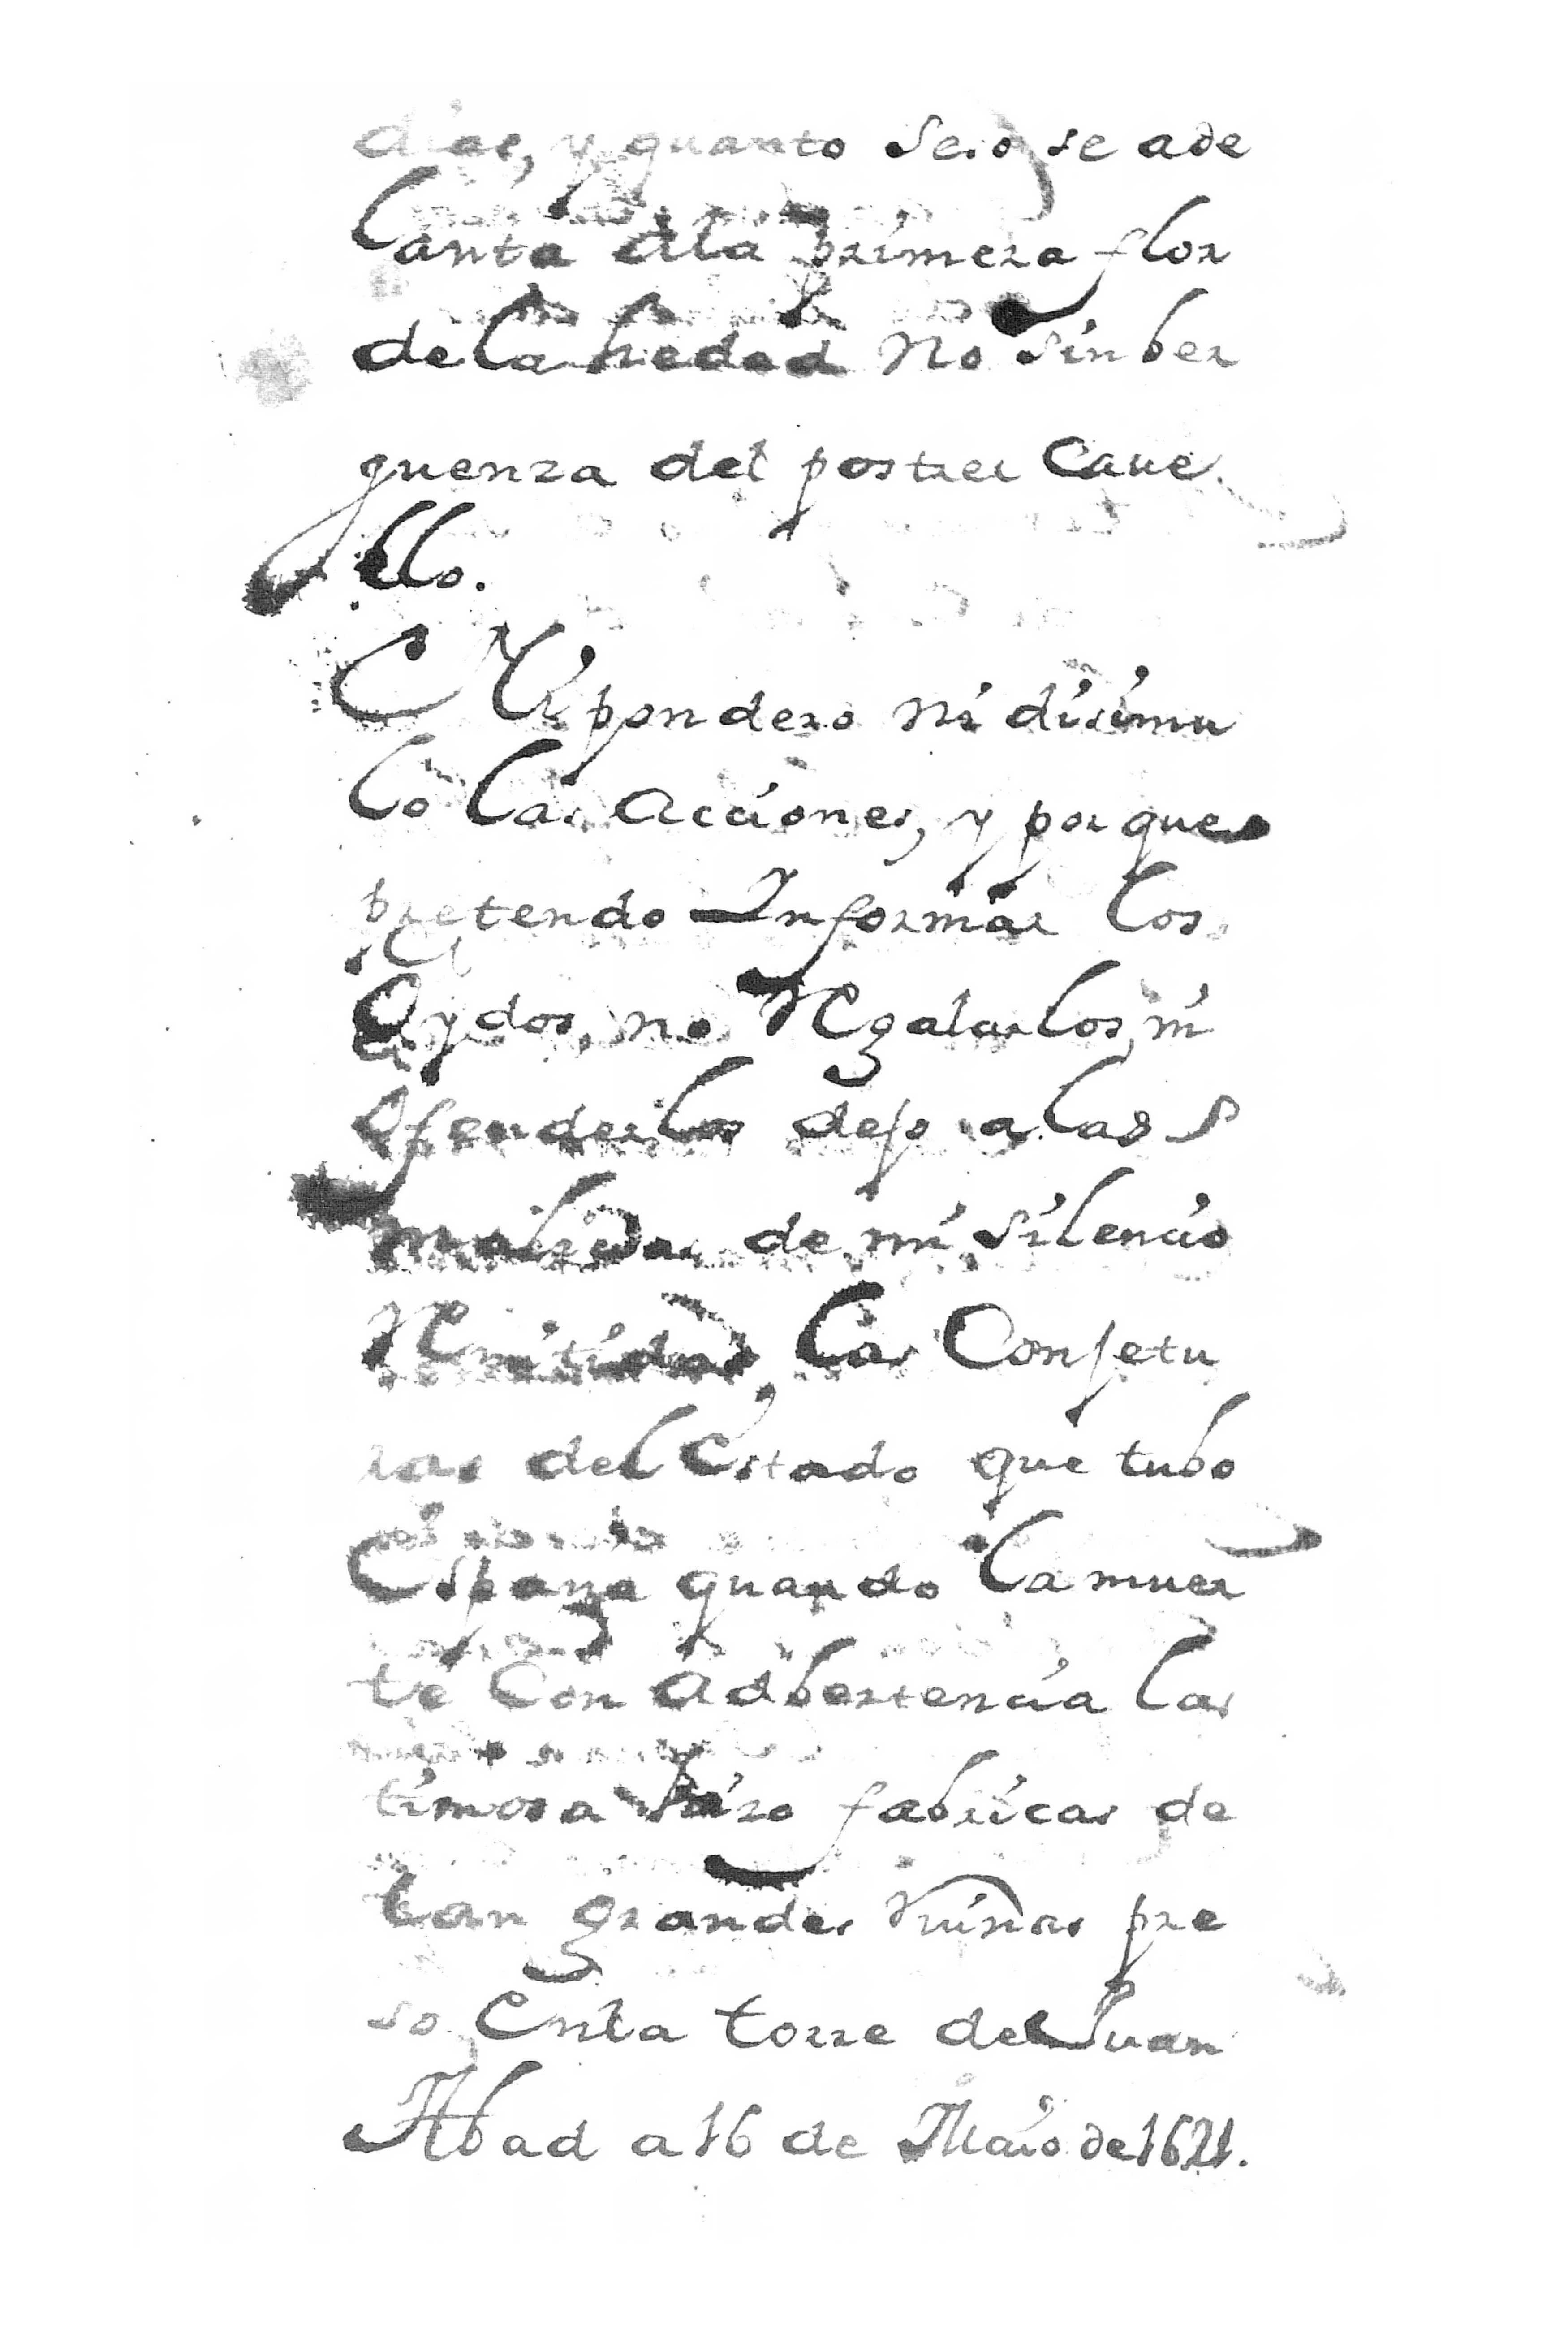 dias, y quanto seso se ade
lanta ala primera flor
dela hedad no sin ber
guenza del postrer Caue
llo.
Ni pondero ni disimu
lo las acciones, y porque
pretendo Informar los
Oydos, no Regalarlos, ni
ofenderlos dejo a las
malicias de mi silencio
Remitidas, las Conjetu
ras del Estado que tubo
España quando la muer
te Con adbertencia las
timosa hizo fabricas de
tan grandes Ruinas pre
so Enla torre de Juan
Abad a 16 de Maio de 1621.